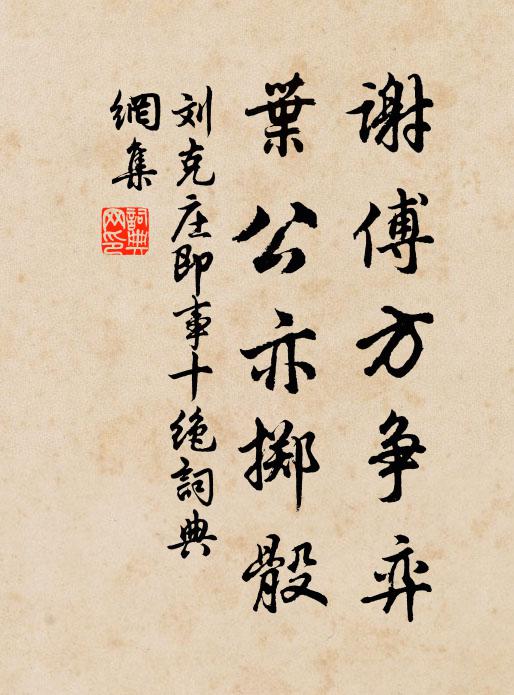 謝傅方争弈
葉公亦擲骰
刘克庄即事十绝詞典
網集
詞典網印